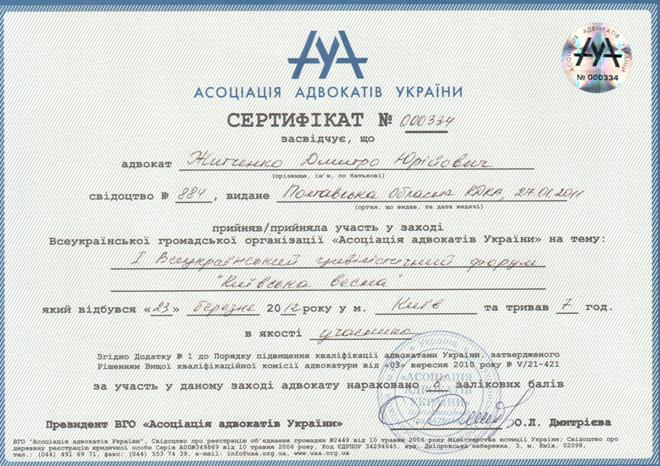 АСОЦІАЦІЯ АДВОКАТІВ УКРАЇНИ
№ 000334
АСОЦІАЦІЯ АДВОКАТІВ УКРАЇНИ
СЕРТИФІКАТ № 000334
засвідчує, що
адвокат Житченко Дмитро Юрійович
(прізвище, ім'я, по батькові)
свідоцтво № 884, видане Полтавська обласна КДКА, 27.01.2011
(орган, що видав, та дата видачі)
прийняв/прийняла участь у заході
Всеукраїнської громадської організації «Асоціація адвокатів України» на тему:
І Всеукраїнський цивілістичний форум
"Київська весна"
який відбувся «23» березня 2012 року у м. Київ та тривав 7 год.
в якості учасника
Згідно Додатку № 1 до Порядку підвищення кваліфікації адвокатами України, затвердженого
Рішенням Вищої кваліфікаційної комісії адвокатури від «03» вересня 2010 року № V/21-421
за участь у даному заході адвокату нараховано залікових балів
Президент ВГО «Асоціація адвокатів України» О.Л. Дмитрієва
ВГО "Асоціація адвокатів України". Свідоцтво про реєстрацію об'єднання громадян №2449 від 10 травня 2006 року Міністерства юстиції України; Свідоцтво про
державну реєстрацію юридичної особи Серія А00 №349869 від 10 травня 2006 року. Код ЄДРПОУ 34294645. вул. Дніпровська набережна, 3, м. Київ, 02098.
тел.: (044) 491 69 71, факс: (044) 553 74 39, e-mail: info@uaa.org.ua, www.uaa.org.ua